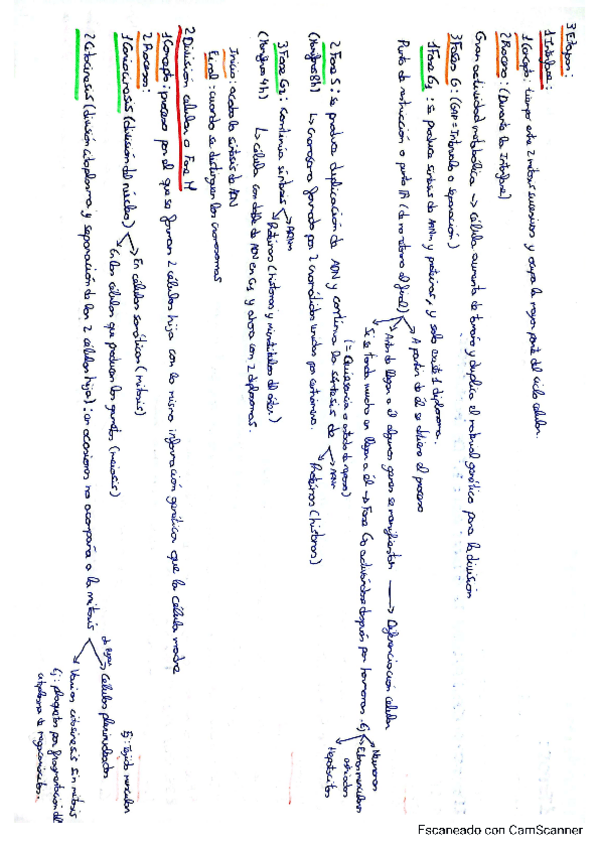 3 Etapas:
1 Interfase:
1 Concepto: tiempo entre 2 mitosis sucesivas y ocupa la mayor parte del ciclo celular.
2 Proceso: (Durante la Interfase)
Gran actividad metabólica → célula aumenta de tamaño y duplica el material genético para la división
3 Fases G: (GAP = Intervalo o separación.)
1 Fase G1: se produce síntesis de ARNm y proteínas, y solo existe 1 diplosoma.
Punto de restricción o punto R (de no retorno al final)
→ A partir de él se obtiene el proceso
→ Antes de llegar a él algunos genes se manifiestan → Diferenciación celular
Si se tarda mucho en llegar a él → Fase G0 activándose después por hormonas. Ej
(= Quiescencia o estado de reposo)
Neuronas
Fibras musculares estriadas
Hepatocitos
2 Fase S: se produce duplicación de ADN y continua la síntesis de → ARNm
Proteínas (histonas)
(Mamíferos 8h) ↳ cromosoma formado por 2 cromátidas unidas por centrómero.
3 Fase G2: Continúa síntesis → ARNm
Proteínas (histonas y microtúbulos del áster.)
(Mamíferos 4h) ↳ célula con doble de ADN en G1 y ahora con 2 diplosomas.
Inicio: acaba la síntesis de ADN
Final: cuando se distinguen los cromosomas
2 División celular o Fase M
1 Concepto: proceso por el que se forman 2 células hija con la misma información genética que la célula madre
2 Proceso:
1 Cariocinesis (división del núcleo) → En células somáticas (mitosis)
En las células que producen los gametos (meiosis)
2 Citocinesis (división citoplasma y separación de las 2 células hija): en ocasiones no acompaña a la mitosis
→ Células plurinucleadas
Ej: Tejido muscular
→ Varias citocinesis sin mitosis
Ej: plaquetas por fragmentación del citoplasma de megacariocitos.
Escaneado con CamScanner